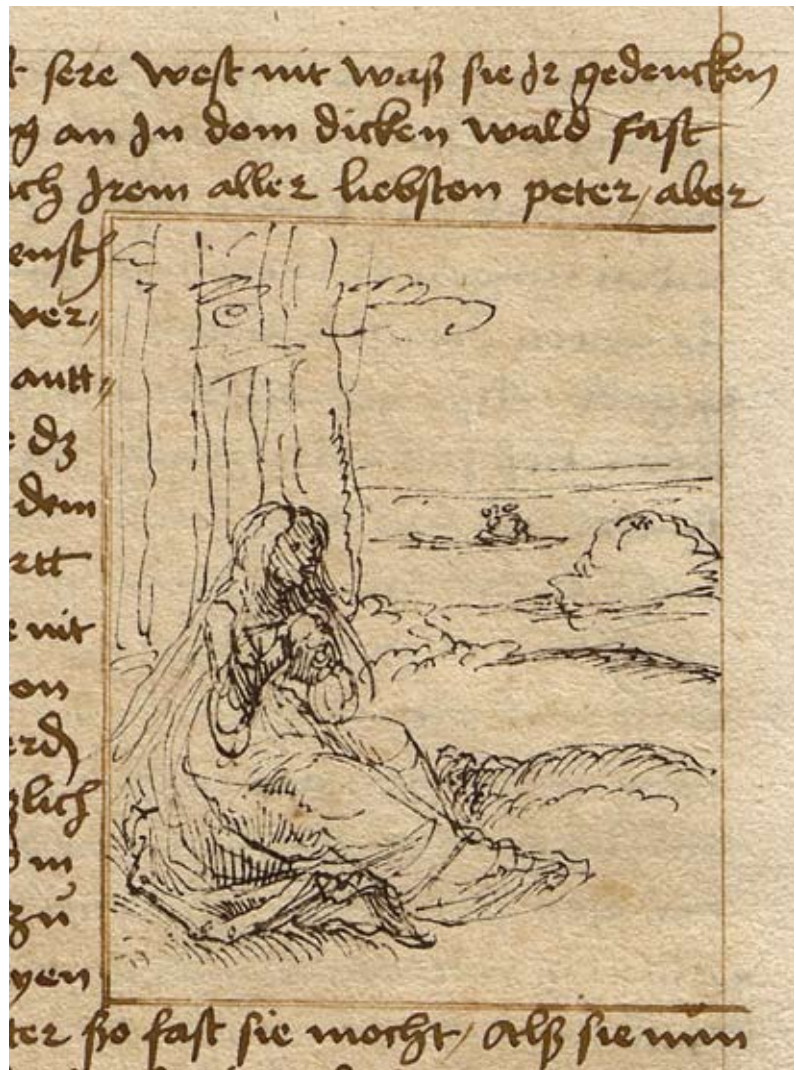 sere West nit waß sie Jr gedencken
g an Jn dem dicken wald fast
ch Jrem aller liebsten peter/ aber
ensch
ver/
antt/
dz
dem
rtt
nit
on
erd
lich
m
zů
yen
ter ßo fast sie mocht/ Alß sie nůn